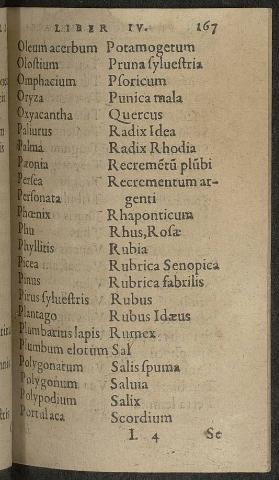 LIBER IV. 167
Oleum acerbum Potamogetum
Olostium Pruna sylvestria
Omphacium Psoricum
Oryza Punica mala
Oxyacantha Quercus
Paliurus Radix Idea
Palma Radix Rhodia
Pæonia Recremẽtũ plũbi
Persea Recrementum ar-
Personata genti
Phœnix Rhaponticum
Phu Rhus, Rosæ
Phyllitis Rubia
Picea Rubrica Senopica
Pinus Rubrica fabrilis
Pirus sylvestris Rubus
Plantago Rubus Idæus
Plumbarius lapis Rumex
Plumbum elotum Sal
Polygonatum Salis spuma
Polygonum Salvia
Polypodium Salix
Portulaca Scordium
L 4 Se